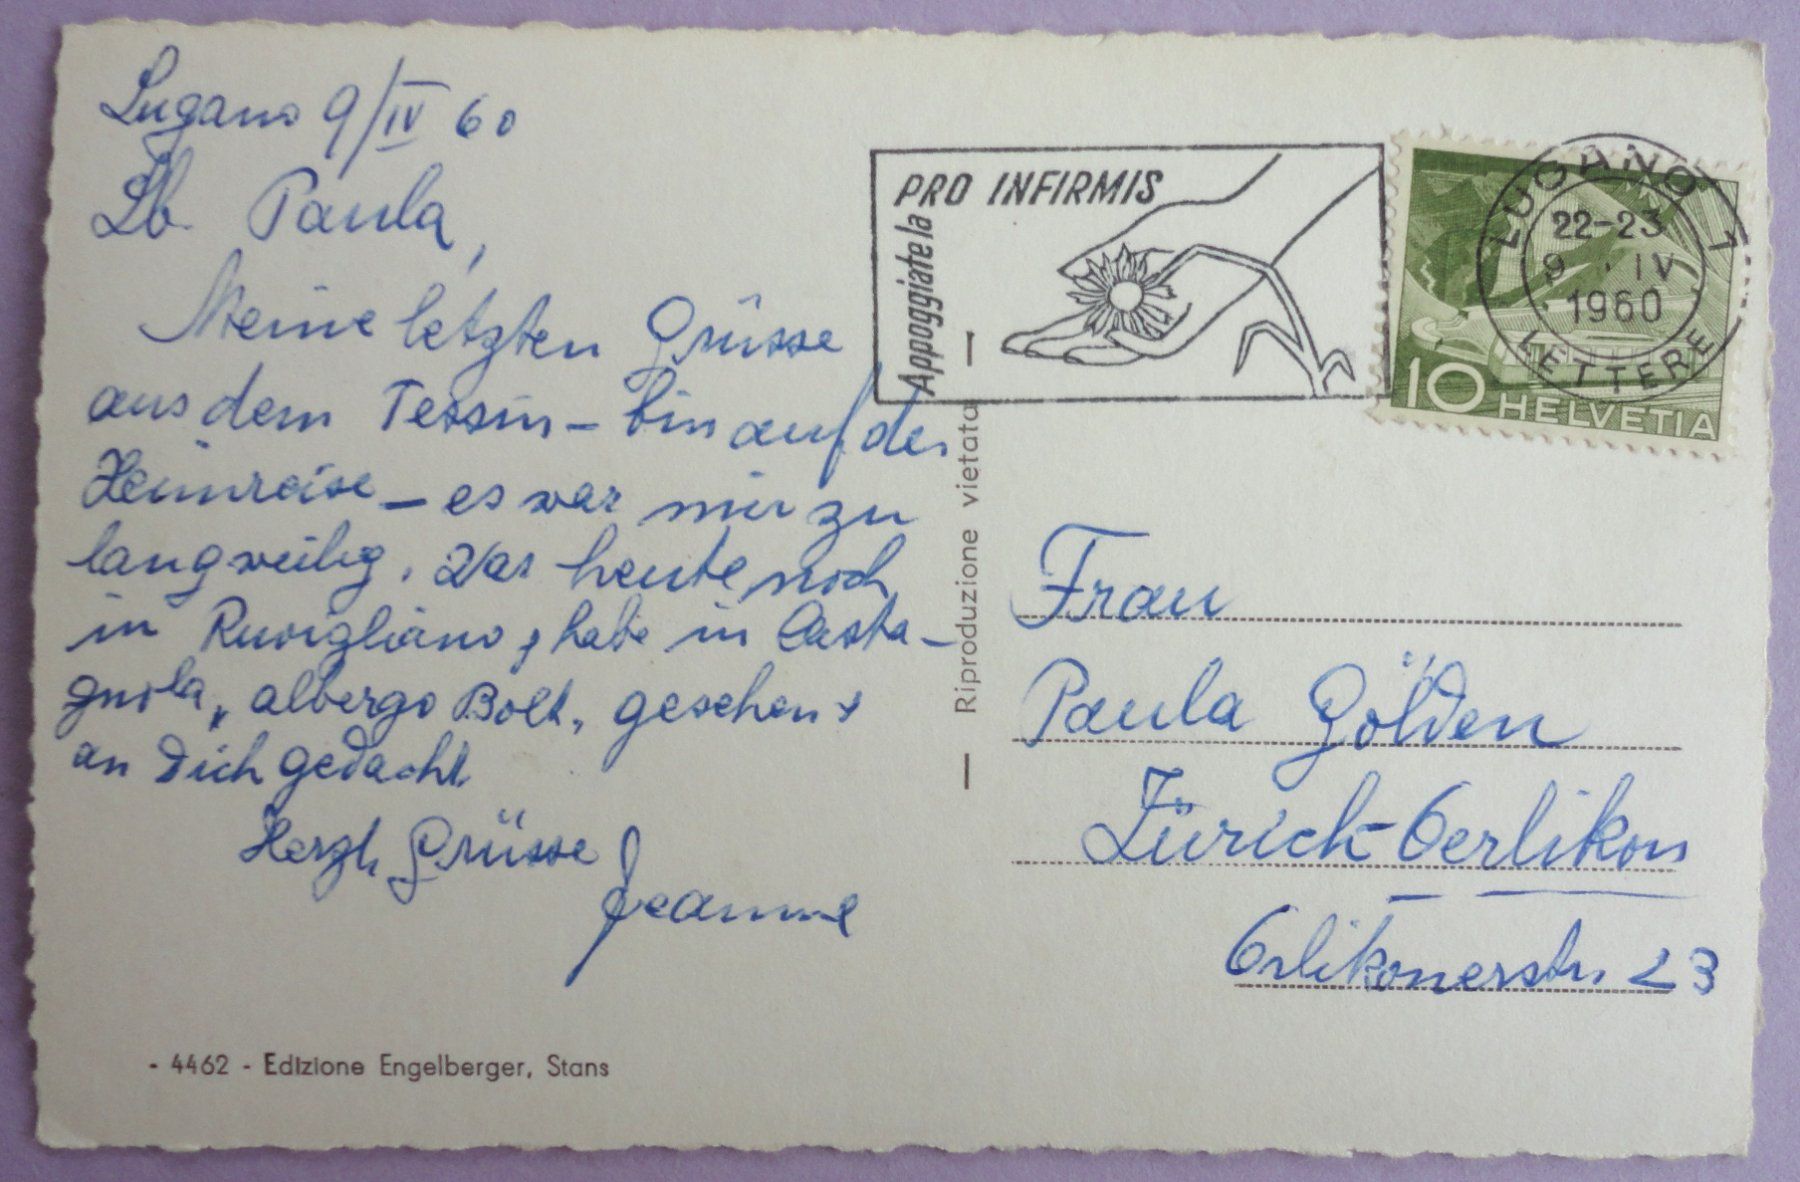 Lugano 9/IV 60
Lb. Paula,
Meine letzten Grüsse
aus dem Tessin – bin auf der
Heimreise – es war mir zu
langweilig. War heute noch
in Ruvigliano, habe in Casta-
gnola, albergo Bolt, gesehen +
an Dich gedacht
Herzl. Grüsse
Jeanne
- 4462 - Edizione Engelberger, Stans
— Riproduzione vietata —
PRO INFIRMIS
Appoggiatela
LUGANO 1
22-23
9. IV
1960
LETTERE
10 HELVETIA
Frau
Paula Gölden
Zürich-Oerlikon
Örlikonerstr. 23